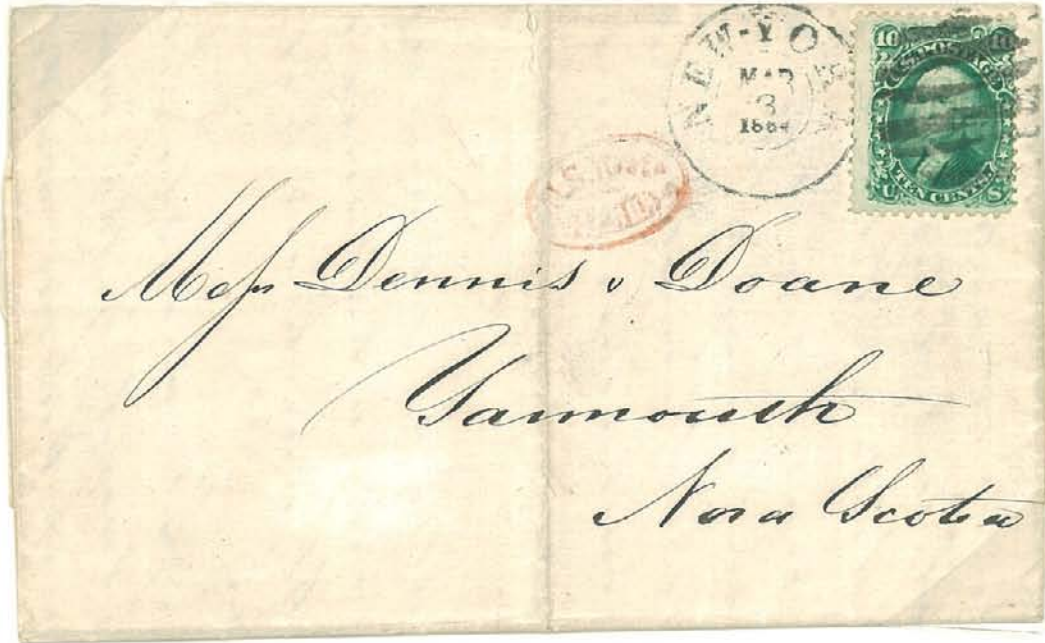 NEW-YO
MAR
3
1864
10 10
U.S. POSTAGE
TEN CENTS
U S
Messrs Dennis & Doane
Yarmouth
Nova Scotia